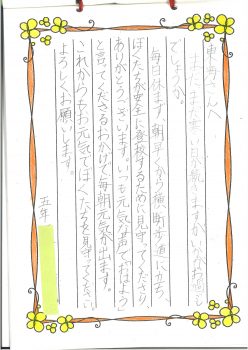 東海さんへ
まだまだ寒い日が続きますがいかがお過ごし
でしょうか。
毎日休まず、朝早くから横断歩道に立ち、
ぼくたちが安全に登校するために見守ってくださり
ありがとうございます。いつも元気な声で「おはよう」
と言ってくださるおかげで毎朝元気が出ます。
これからもお元気でぼくたちを見守ってください。
よろしくお願いします。
五年